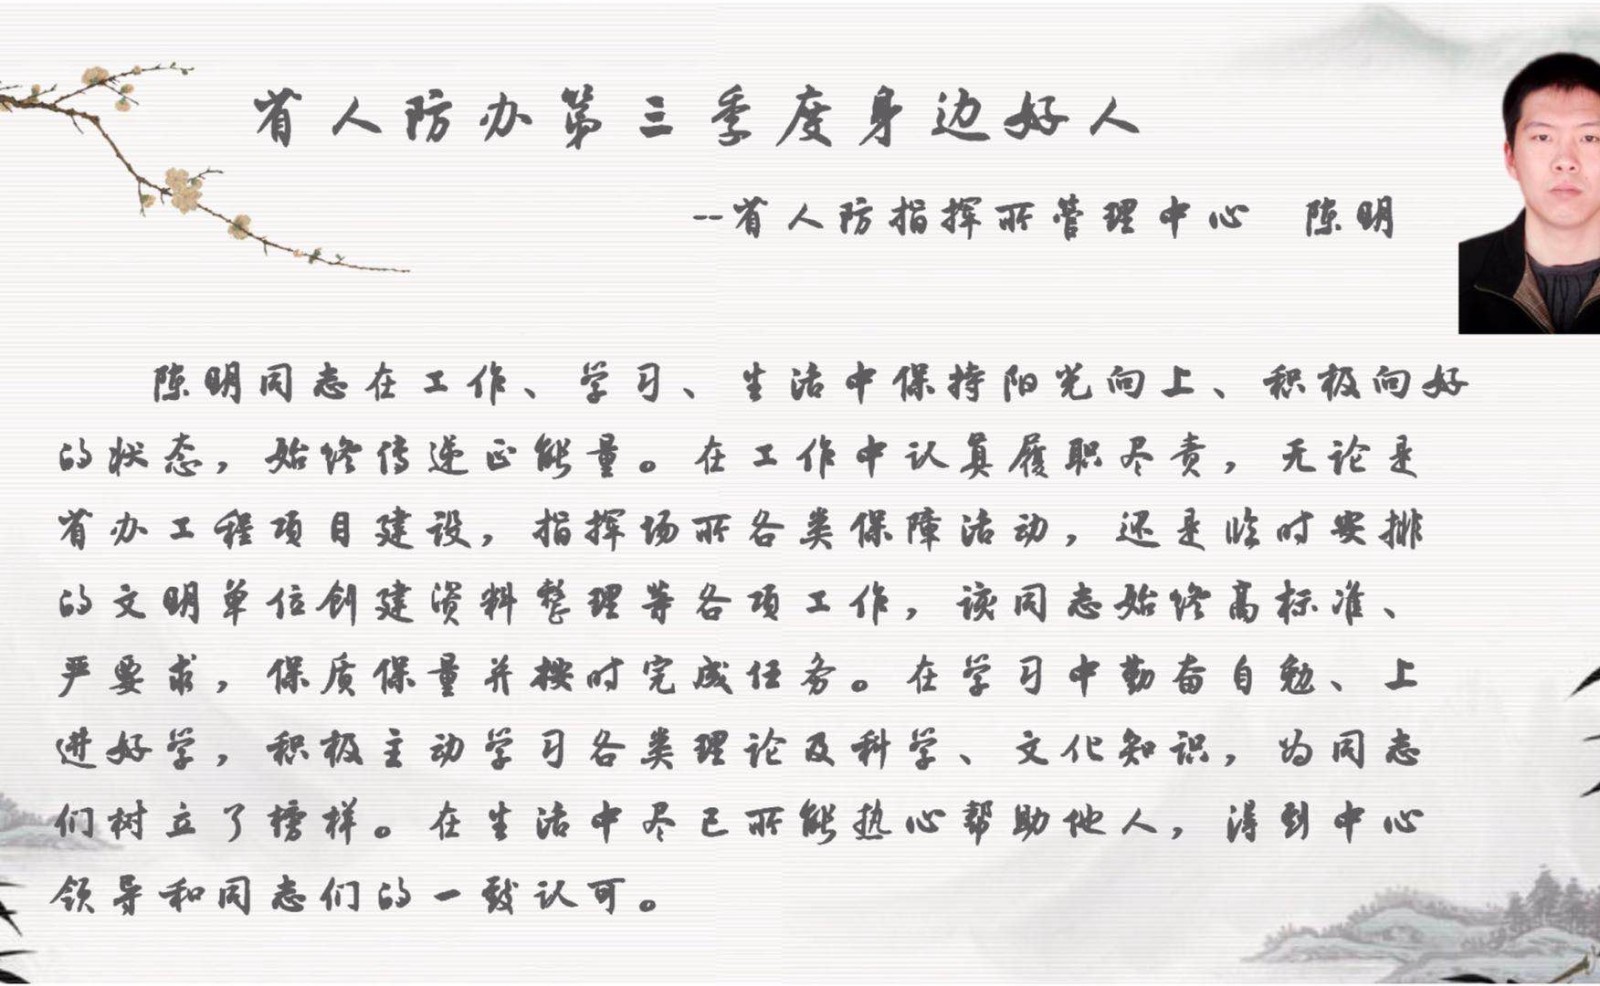 省人防办第三季度身边好人
--省人防指挥所管理中心 陈明
陈明同志在工作、学习、生活中保持阳光向上、积极向好
的状态，始终传递正能量。在工作中认真履职尽责，无论是
省办工程项目建设，指挥场所各类保障活动，还是临时安排
的文明单位创建资料整理等各项工作，该同志始终高标准、
严要求，保质保量并按时完成任务。在学习中勤奋自勉、上
进好学，积极主动学习各类理论及科学、文化知识，为同志
们树立了榜样。在生活中尽已所能热心帮助他人，得到中心
领导和同志们的一致认可。